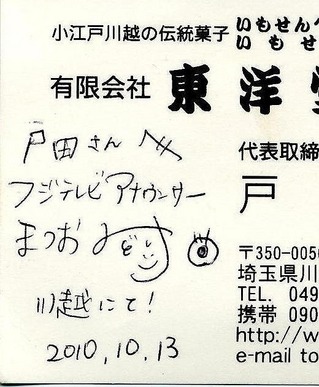 小江戸川越の伝統菓子
いもせん
いもせ
有限会社 東洋
代表取締
戸
〒350-005
埼玉県川
TEL. 049
携帯 090
http://w
e-mail to
戸田さんへ
フジテレビアナウンサー
まつおみどり
川越にて!
2010.10.13